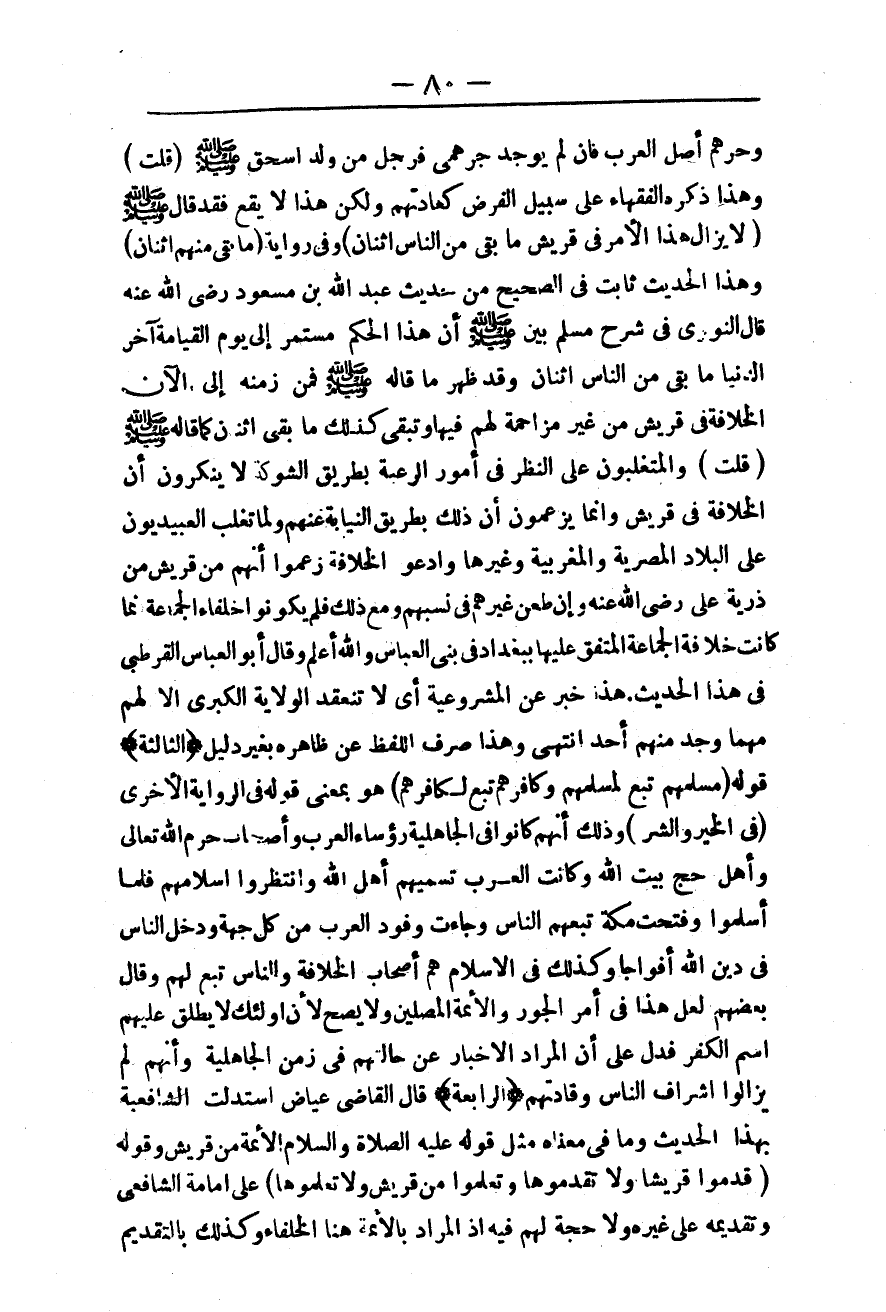 — ٨٠ —
وجرهم أصل العرب فان لم يوجد جرهمى فرجل من ولد اسحق ﷺ (قلت)
وهذا ذكره الفقهاء على سبيل الفرض كعادتهم ولكن هذا لا يقع فقد قال ﷺ
(لا يزال هذا الأمر فى قريش ما بقى من الناس اثنان) وفى رواية (ما بقى منهم اثنان)
وهذا الحديث ثابت فى الصحيح من حديث عبد الله بن مسعود رضى الله عنه
قال النووى فى شرح مسلم بين ﷺ أن هذا الحكم مستمر إلى يوم القيامة آخر
الدنيا ما بقى من الناس اثنان وقد ظهر ما قاله ﷺ فمن زمنه إلى الآن
الخلافة فى قريش من غير مزاحمة لهم فيها وتبقى كذلك ما بقى اثنان كما قاله ﷺ
(قلت) والمتغلبون على النظر فى أمور الرعية بطريق الشوكة لا ينكرون أن
الخلافة فى قريش وانما يزعمون أن ذلك بطريق النيابة عنهم ولما تغلب العبيديون
على البلاد المصرية والمغربية وغيرها وادعو الخلافة زعموا أنهم من قريش من
ذرية على رضى الله عنه وإن طعن غيرهم فى نسبهم ومع ذلك فلم يكونوا خلفاء الجماعة انما
كانت خلافة الجماعة المتفق عليها ببغداد فى بنى العباس والله أعلم وقال أبو العباس القرطبى
فى هذا الحديث. هذا خبر عن المشروعية أى لا تنعقد الولاية الكبرى الا لهم
مهما وجد منهم أحد انتهى وهذا صرف اللفظ عن ظاهره بغير دليل ﴿الثالثة﴾
قوله (مسلمهم تبع لمسلمهم وكافرهم تبع لكافرهم) هو بمعنى قوله فى الرواية الأخرى
(فى الخير والشر) وذلك أنهم كانوا فى الجاهلية رؤساء العرب وأصحاب حرم الله تعالى
وأهل حج بيت الله وكانت العرب تسميهم أهل الله وانتظروا اسلامهم فلما
أسلموا وفتحت مكة تبعهم الناس وجاءت وفود العرب من كل جهة ودخل الناس
فى دين الله أفواجا وكذلك فى الاسلام هم أصحاب الخلافة والناس تبع لهم وقال
بعضهم لعل هذا فى أمر الجور والأئمة المضلين ولا يصح لأن اولئك لا يطلق عليهم
اسم الكفر فدل على أن المراد الاخبار عن حالتهم فى زمن الجاهلية وأنهم لم
يزالوا اشراف الناس وقادتهم ﴿الرابعة﴾ قال القاضى عياض استدلت الشافعية
بهذا الحديث وما فى معناه مثل قوله عليه الصلاة والسلام الأئمة من قريش وقوله
(قدموا قريشا ولا تقدموها وتعلموا من قريش ولا تعلموها) على امامة الشافعى
وتقديمه على غيره ولا حجة لهم فيه اذ المراد بالأئمة هنا الخلفاء وكذلك بالتقديم